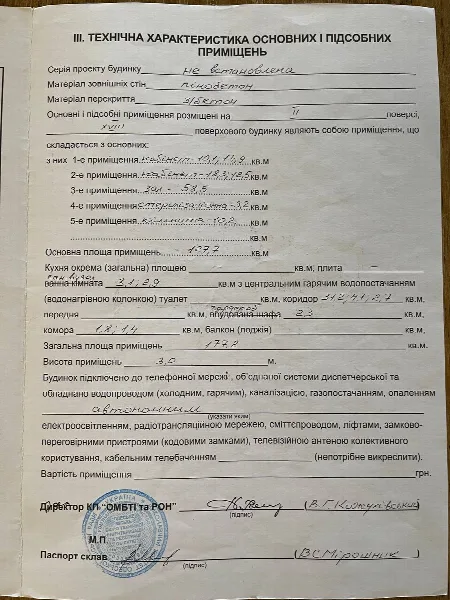 III. ТЕХНІЧНА ХАРАКТЕРИСТИКА ОСНОВНИХ І ПІДСОБНИХ
ПРИМІЩЕНЬ
Серія проекту будинку не встановлена
Матеріал зовнішніх стін пінобетон
Матеріал перекриття з/бетон
Основні і підсобні приміщення розміщені на II поверсі,
XVIII поверхового будинку являють собою приміщення, що
складається з основних:
з них 1-е приміщення кабінет - 10,1, 14,9 кв.м
2-е приміщення кабінет - 18,3, 18,5 кв.м
3-е приміщення зал - 58,5 кв.м
4-е приміщення кв.м
5-е приміщення кв.м
кв.м
Основна площа приміщень кв.м
Кухня окрема (загальна) площею кв.м, плита –
ванна кімната 3,1, 2,9 кв.м з центральним гарячим водопостачанням
(водонагрівною колонкою) туалет кв.м, коридор кв.м,
передня кв.м, вбудована шафа 2,3 кв.м,
комора 1,8, 1,4 кв.м, балкон (лоджія) кв.м.
Загальна площа приміщень кв.м.
Висота приміщень 3,0 м.
Будинок підключено до телефонної мережі, об'єднаної системи диспетчерської та
обладнано водопроводом (холодним, гарячим), каналізацією, газопостачанням, опаленням
автономним
(указати яким)
електроосвітленням, радіотрансляційною мережею, сміттєпроводом, ліфтами, замково-
переговорними пристроями (кодовими замками), телевізійною антеною колективного
користування, кабельним телебаченням (непотрібне викреслити).
Вартість приміщення грн.
Директор КП "ОМБТІ та РОН"
(підпис)
М.П.
Паспорт склав (В.С. Мірошник
(підпис)